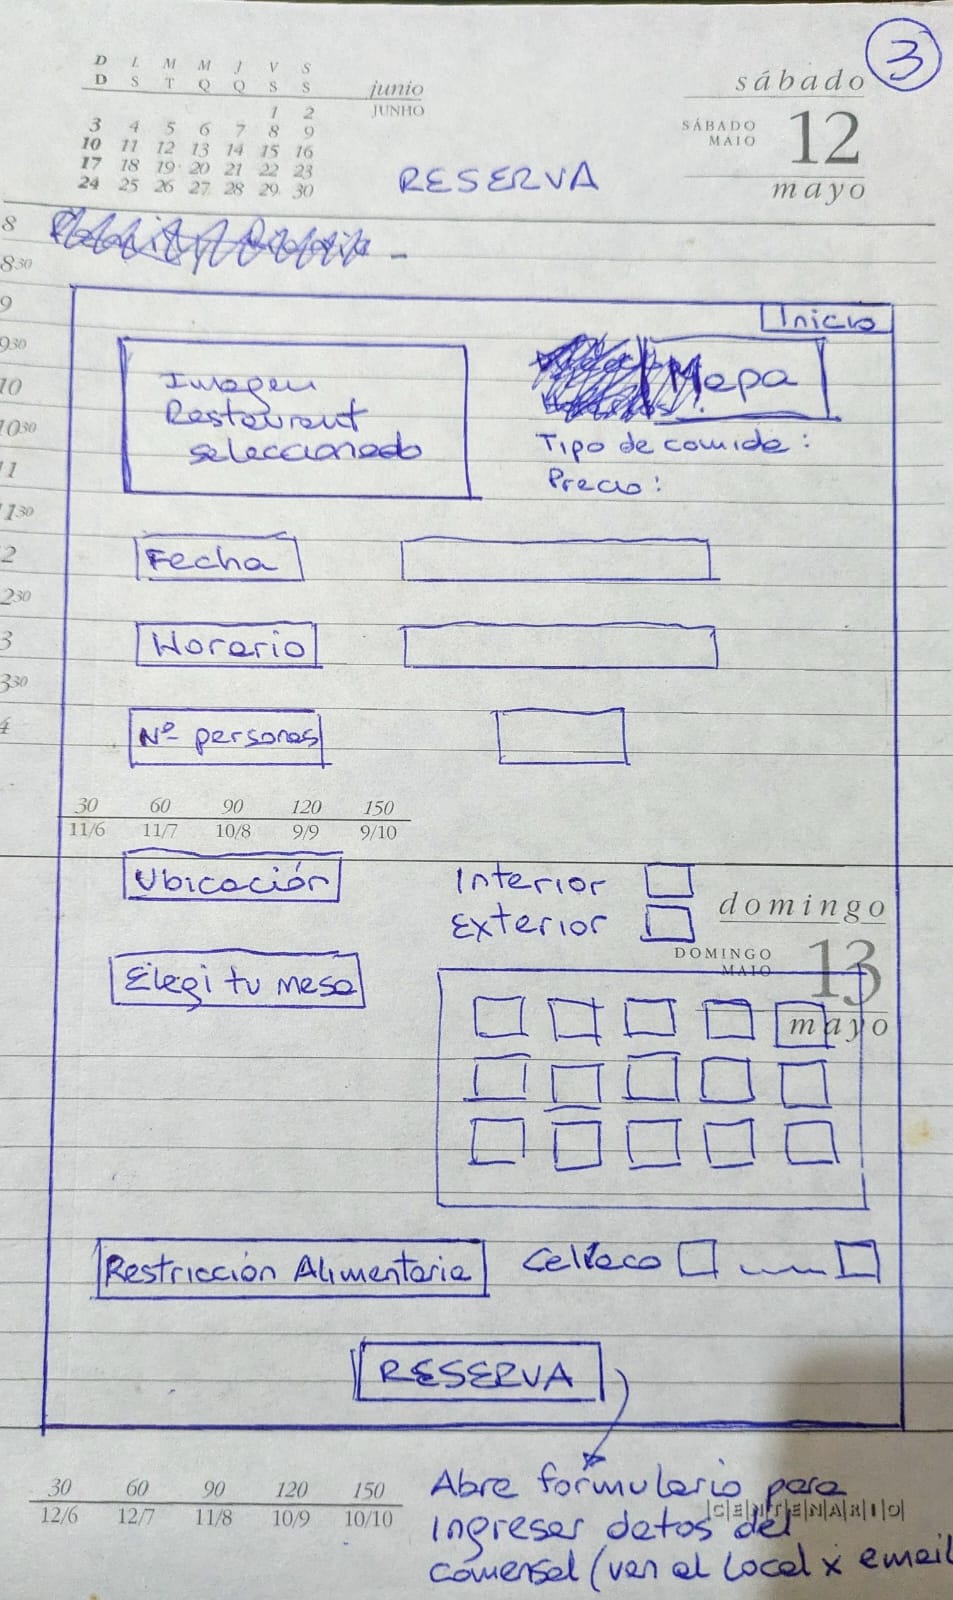 3
D L M M J V S
D S T Q Q S S
junio
JUNHO
1 2
3 4 5 6 7 8 9
10 11 12 13 14 15 16
17 18 19 20 21 22 23
24 25 26 27 28 29 30
sábado
SÁBADO
MAIO
12
mayo
RESERVA
8
830
9
930
10
1030
11
1130
2
230
3
330
4
Inicio
Imagen
Restaurant
seleccionado
Mapa
Tipo de comida:
Precio:
Fecha
Horario
Nº personas
30 60 90 120 150
11/6 11/7 10/8 9/9 9/10
Ubicación
Interior
Exterior
domingo
DOMINGO
MAIO
13
mayo
Elegi tu mesa
Restricción Alimentaria
Celíaco
RESERVA
30 60 90 120 150
12/6 12/7 11/8 10/9 10/10
Abre formulario para
ingresar datos del
comensal (van al local x email
CENTENARIO